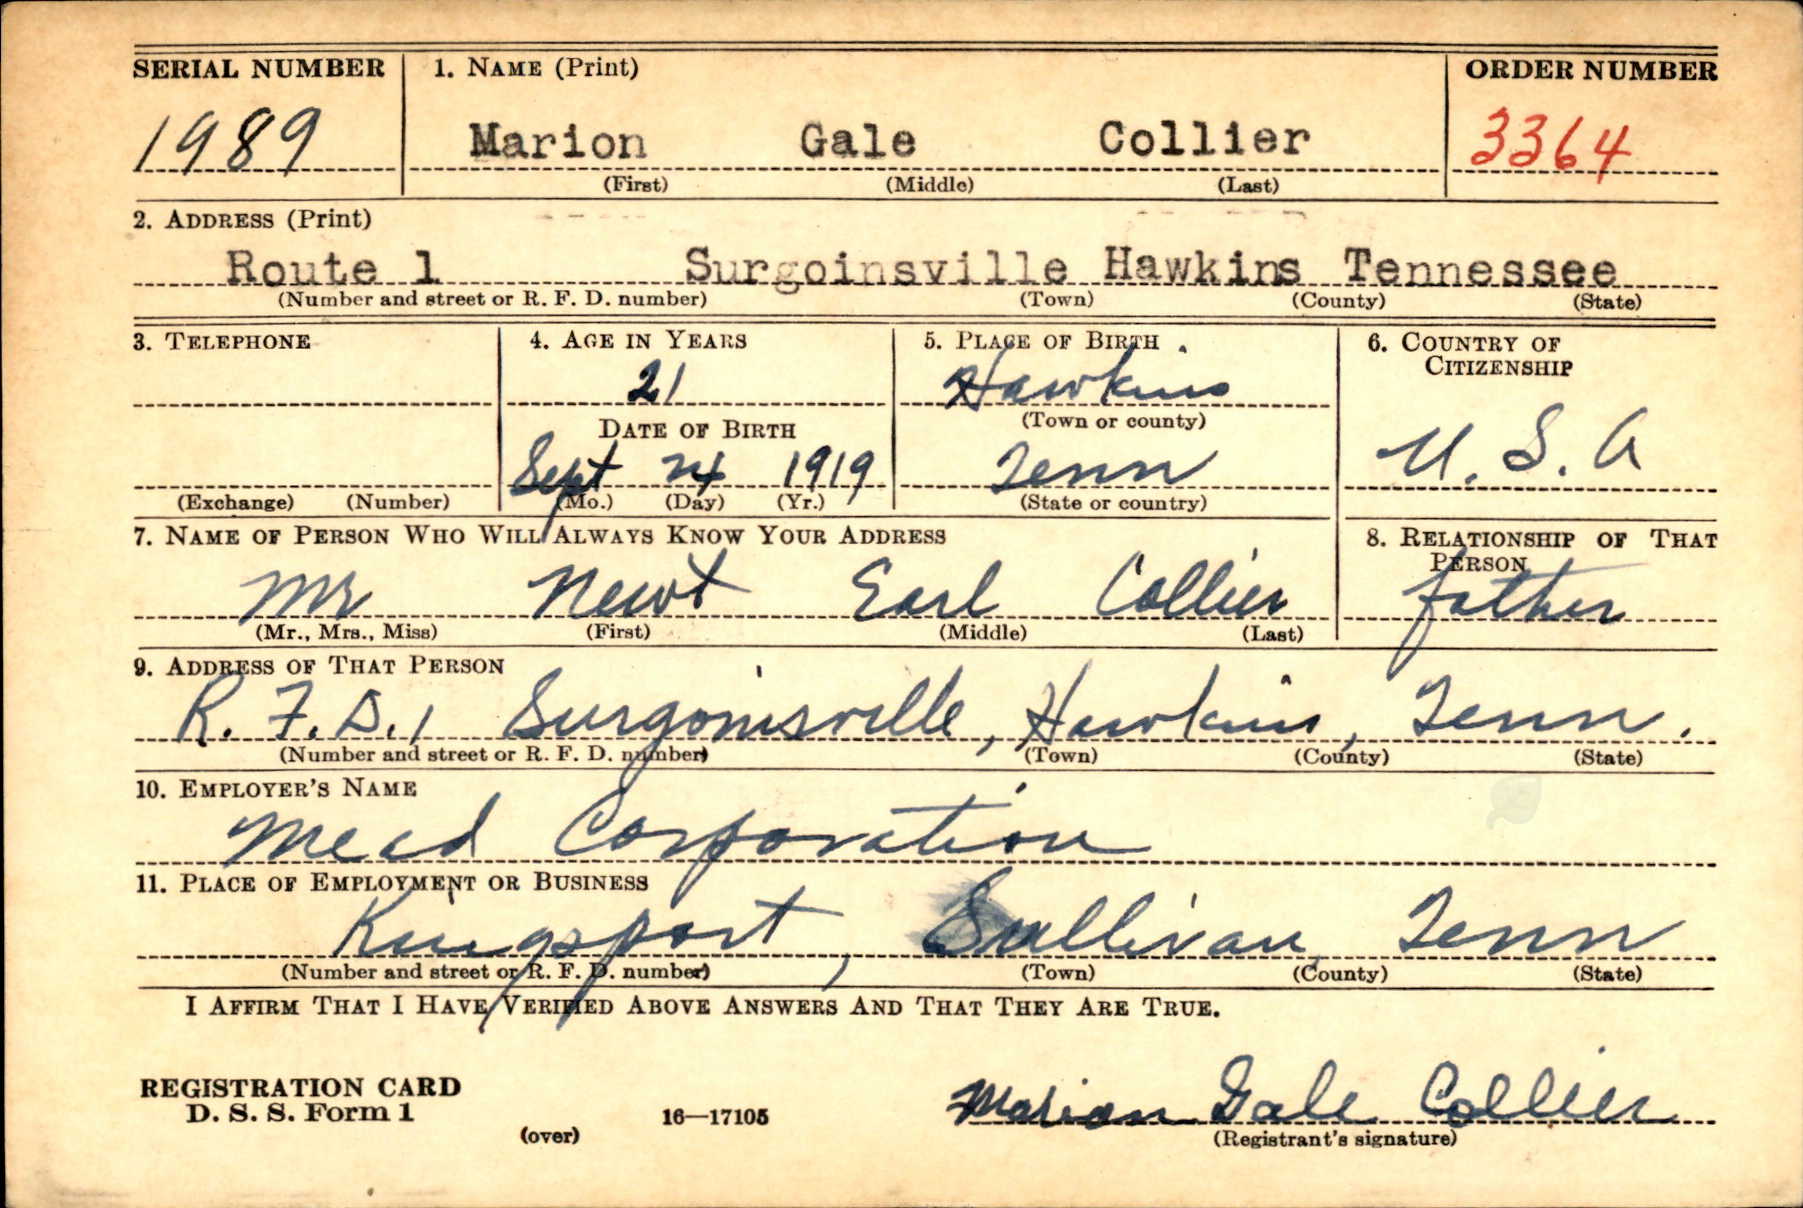 SERIAL NUMBER 1. NAME (Print) ORDER NUMBER
1989 Marion Gale Collier 3364
(First) (Middle) (Last)
2. ADDRESS (Print)
Route 1 Surgoinsville Hawkins Tennessee
(Number and street or R. F. D. number) (Town) (County) (State)
3. TELEPHONE 4. AGE IN YEARS 5. PLACE OF BIRTH 6. COUNTRY OF CITIZENSHIP
21 Hawkins
DATE OF BIRTH (Town or county)
Sept 24 1919 Tenn U. S. A
(Exchange) (Number) (Mo.) (Day) (Yr.) (State or country)
7. NAME OF PERSON WHO WILL ALWAYS KNOW YOUR ADDRESS 8. RELATIONSHIP OF THAT PERSON
Mr Newt Earl Collier father
(Mr., Mrs., Miss) (First) (Middle) (Last)
9. ADDRESS OF THAT PERSON
R. F. D. 1 Surgoinsville, Hawkins, Tenn.
(Number and street or R. F. D. number) (Town) (County) (State)
10. EMPLOYER'S NAME
Mead Corporation
11. PLACE OF EMPLOYMENT OR BUSINESS
Kingsport, Sullivan, Tenn
(Number and street or R. F. D. number) (Town) (County) (State)
I AFFIRM THAT I HAVE VERIFIED ABOVE ANSWERS AND THAT THEY ARE TRUE.
REGISTRATION CARD
D. S. S. Form 1 16—17105 Marion Gale Collier
(over) (Registrant's signature)